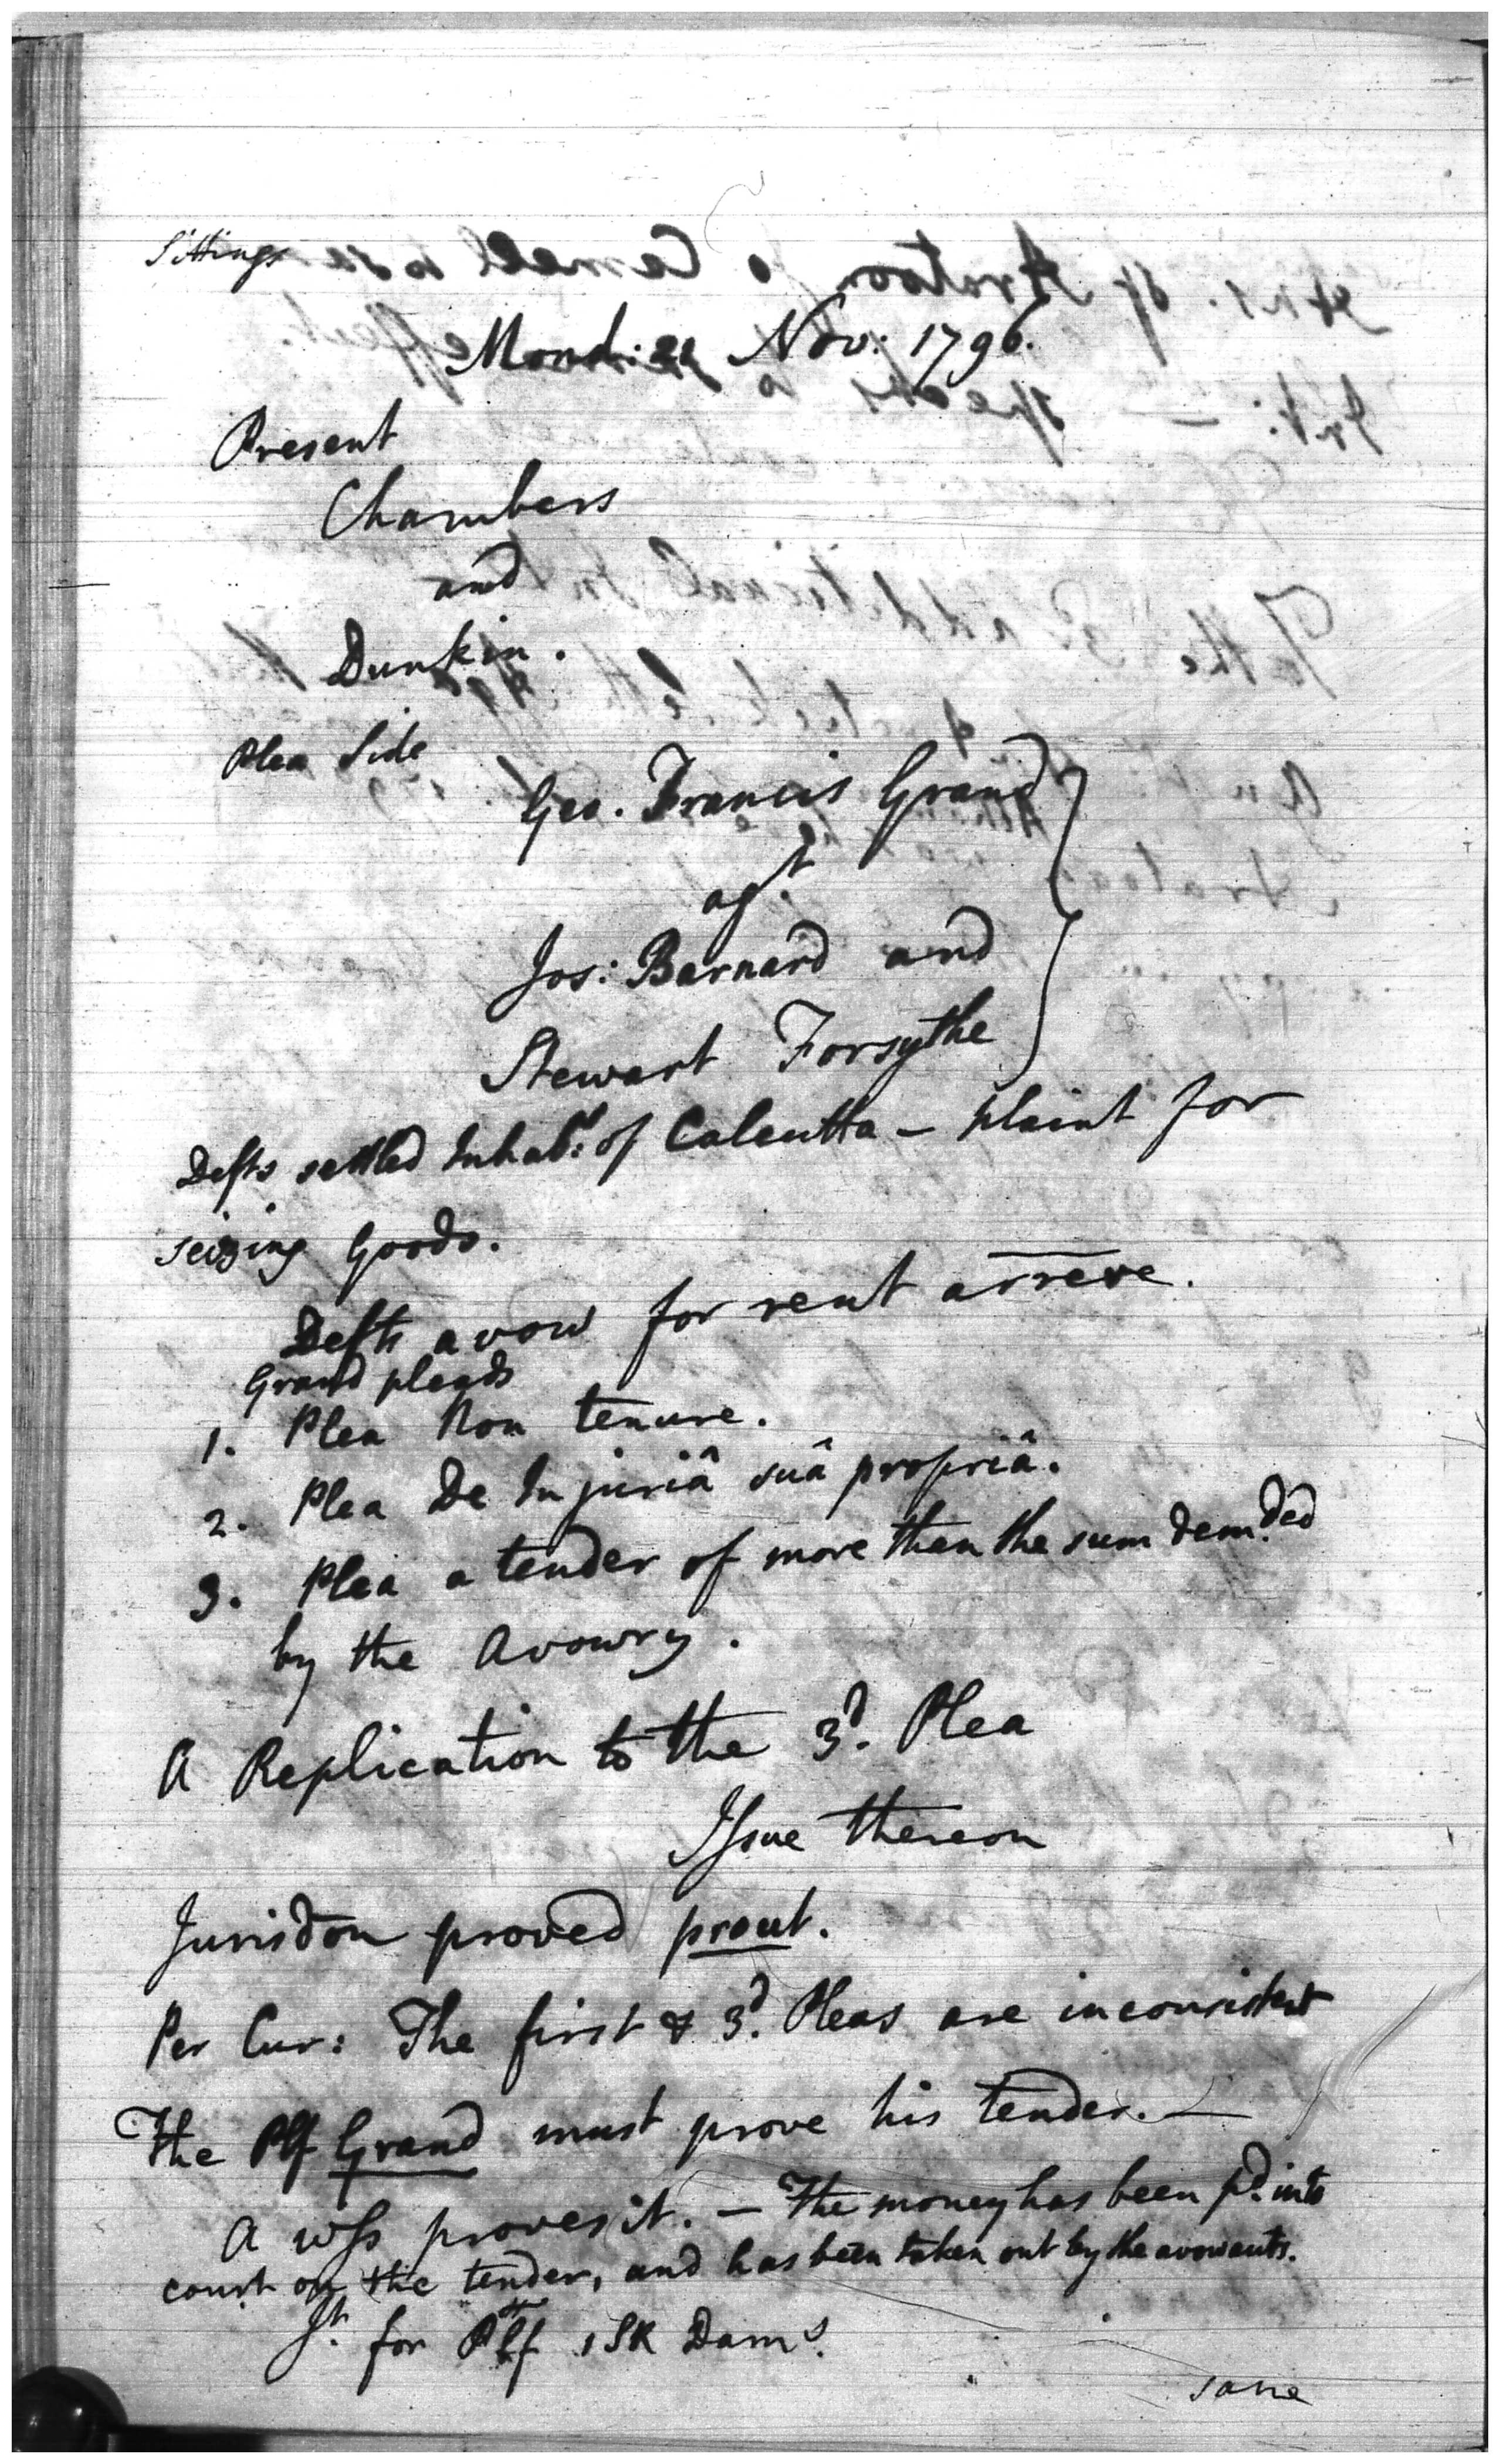 Sittings
Mond: 21 Nov: 1796.
Present
Chambers
and
Dunkin.
Plea Side
Geo. Francis Grand
agt.
Jos: Barnard and
Stewart Forsythe
Defts settled Inhabts. of Calcutta – plaint for
seizing Goods.
Defts avow for rent arrere.
Grand pleads
1. Plea Non tenure.
2. Plea De Injuriâ suâ propriâ.
3. Plea a tender of more than the sum demded
by the Avowry.
A Replication to the 3d. Plea
Issue thereon
Jurisdon proved prout.
Per Cur: The first & 3d. Pleas are inconsistent
The Plf Grand must prove his tender. —
A wss proves it. — The money has been pd. into
court on the tender, and has been taken out by the avowants.
Jt. for Plf 1 SR Dams.
same